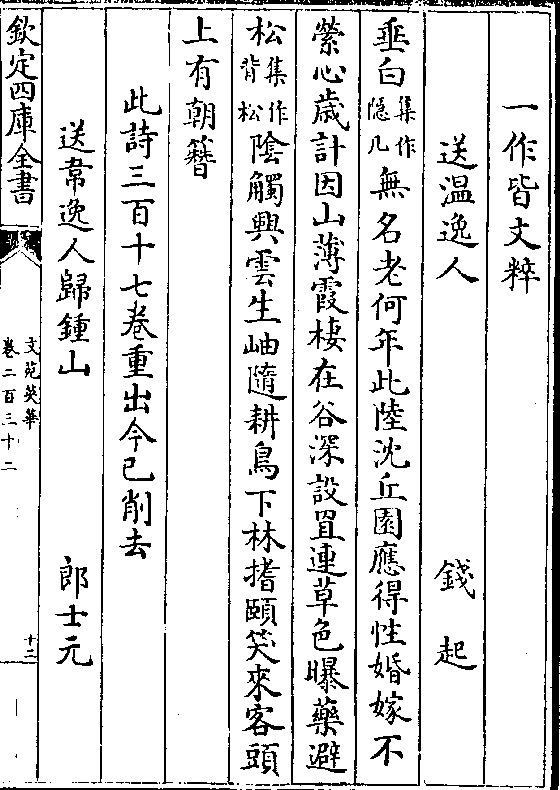 一作皆文粹
送温逸人　錢起
垂白集作隠几無名老何年此陸沈丘園應得性婚嫁不
縈心歳計因山薄霞棲在谷深設罝連草色曝藥避
松集作背松陰觸興雲生岫隨耕鳥下林搘頤笑來客頭
上有朝簪
此詩三百十七卷重出今已削去
送韋逸人歸鍾山　郎士元
欽定四庫全書
文苑英華
卷二百三十二
十二